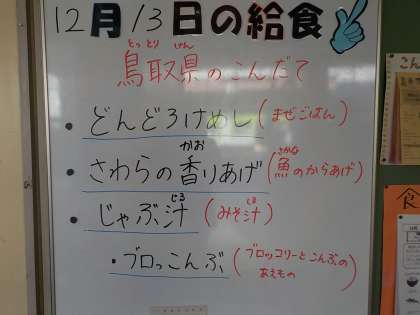 12月13日の給食
とっとり けん
鳥取県のこんだて
・どんどろけめし(まぜごはん)
かお さかな
・さわらの香りあげ(魚のからあげ)
じる しる
・じゃぶ汁(みそ汁)
・ブロっこんぶ(ブロッコリーとこんぶの
あえもの)
こん
食